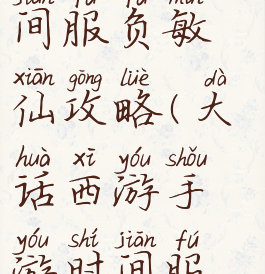 间服负敏
xiān gōng lüè dà
仙攻略(大
huà xī yóu shǒu
话西游手
yóu shí jiān fú
游时间服